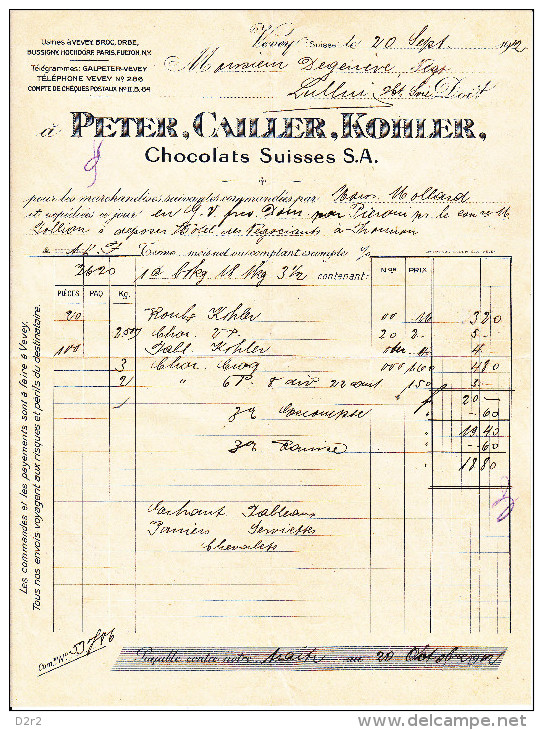 Usines à VEVEY, BROC, ORBE,
BUSSIGNY, HOCHDORF, PARIS, FULTON, N.Y.
Télégrammes: GALPETER-VEVEY
TÉLÉPHONE VEVEY Nº 286
COMPTE DE CHÈQUES POSTAUX Nº II.B.64
Vevey (Suisse) le 20 Sept. 1912
Monsieur Degenève,
Lullin
à PETER, CAILLER, KOHLER,
Chocolats Suisses S.A.
pour les marchandises suivantes commandées par Mons. Molland
et expédiées ce jour en G.V.
à déposer Hôtel des Négociants à Thonon
Terme, mois net ou comptant escompte %
2620 contenant: Nos PRIX
PIÈCES PAQ. Kg.
20 Kohler 00 16 3 20
2.500 Choc. V.P. 20 2.- 5.-
100 Tabl. Kohler 4.-
3 Choc. 000 1 60 4 80
2 " 6P. 8 div. 1 50 3.-
20.-
3% Escompte " -.60
19 40
3% Remise " -.60
18 80
Cachant Tableaux
Paniers Serviettes
Chevalets
Les commandes et les payements sont à faire à Vevey.
Tous nos envois voyagent aux risques et perils du destinataire.
Payable contre notre traite au 20 Octobre 1912
D2r2
delcampe.net